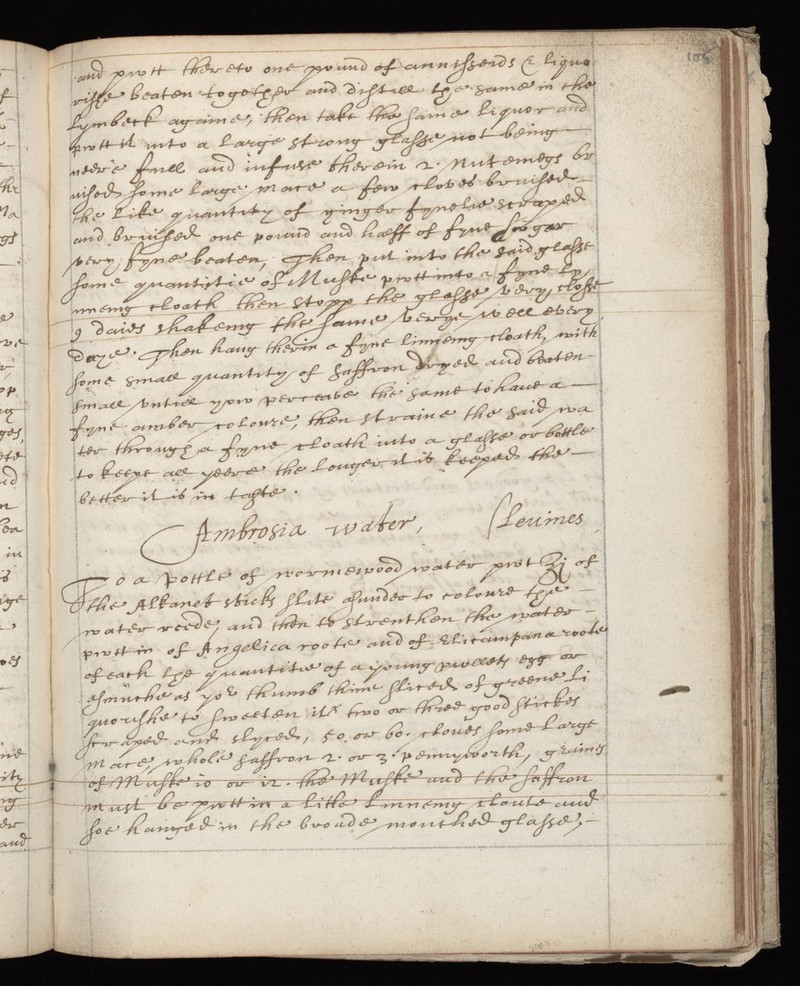 106
and pwtt thereto one pound of annisseids & liquo
rishe beaten together and distill the same in the
Lymbeck againe, then take the same liquor and
pwtt it into a large strong glasse not being
neere full and infuse therein 2. Nutemegs br
uised some large mace a few cloves bruised
the like quantity of ginger fynelie scraped
and bruised one pound and halff of fyne sugar
very fyne beaten, Then put into the said glasse
some quantitie of Muske pwtt into a fyne ly
nneing cloath then stopp the glasse very close
9 daies shakeing the same verye well every
daye. Then hang therin a fyne linneing cloath, with
some small quantity of saffron dryed and beaten
small untill yow perceave the same to have a
fyne amber coloure, then straine the said wa
ter through a fyne cloath into a glasse or bottle
to keepe all yeere the longer it is keeped the
better it is in taste.
Ambrosia water, Slevines
To a pottle of wormewood water pwt ℥j of
the Alkanet sticks slite asunder to coloure the
water reede, and then to strenthen the water
pwtt in of Angelica roote and of Elicampana roote
of each the quantitie of a young pwllets egg or
asmuche as yor thumb thine sliced of greene li
quorishe to sweeten it two or three good stickes
scraped and slyced, 50. or 60. cloves some large
mace, whole saffron 2. or 3. pennyworth, graines
of Muske 10 or 12. the Muske and the saffron
must be pwtt in a little linneing cloute and
soe hanged in the broade mouthed glasse,